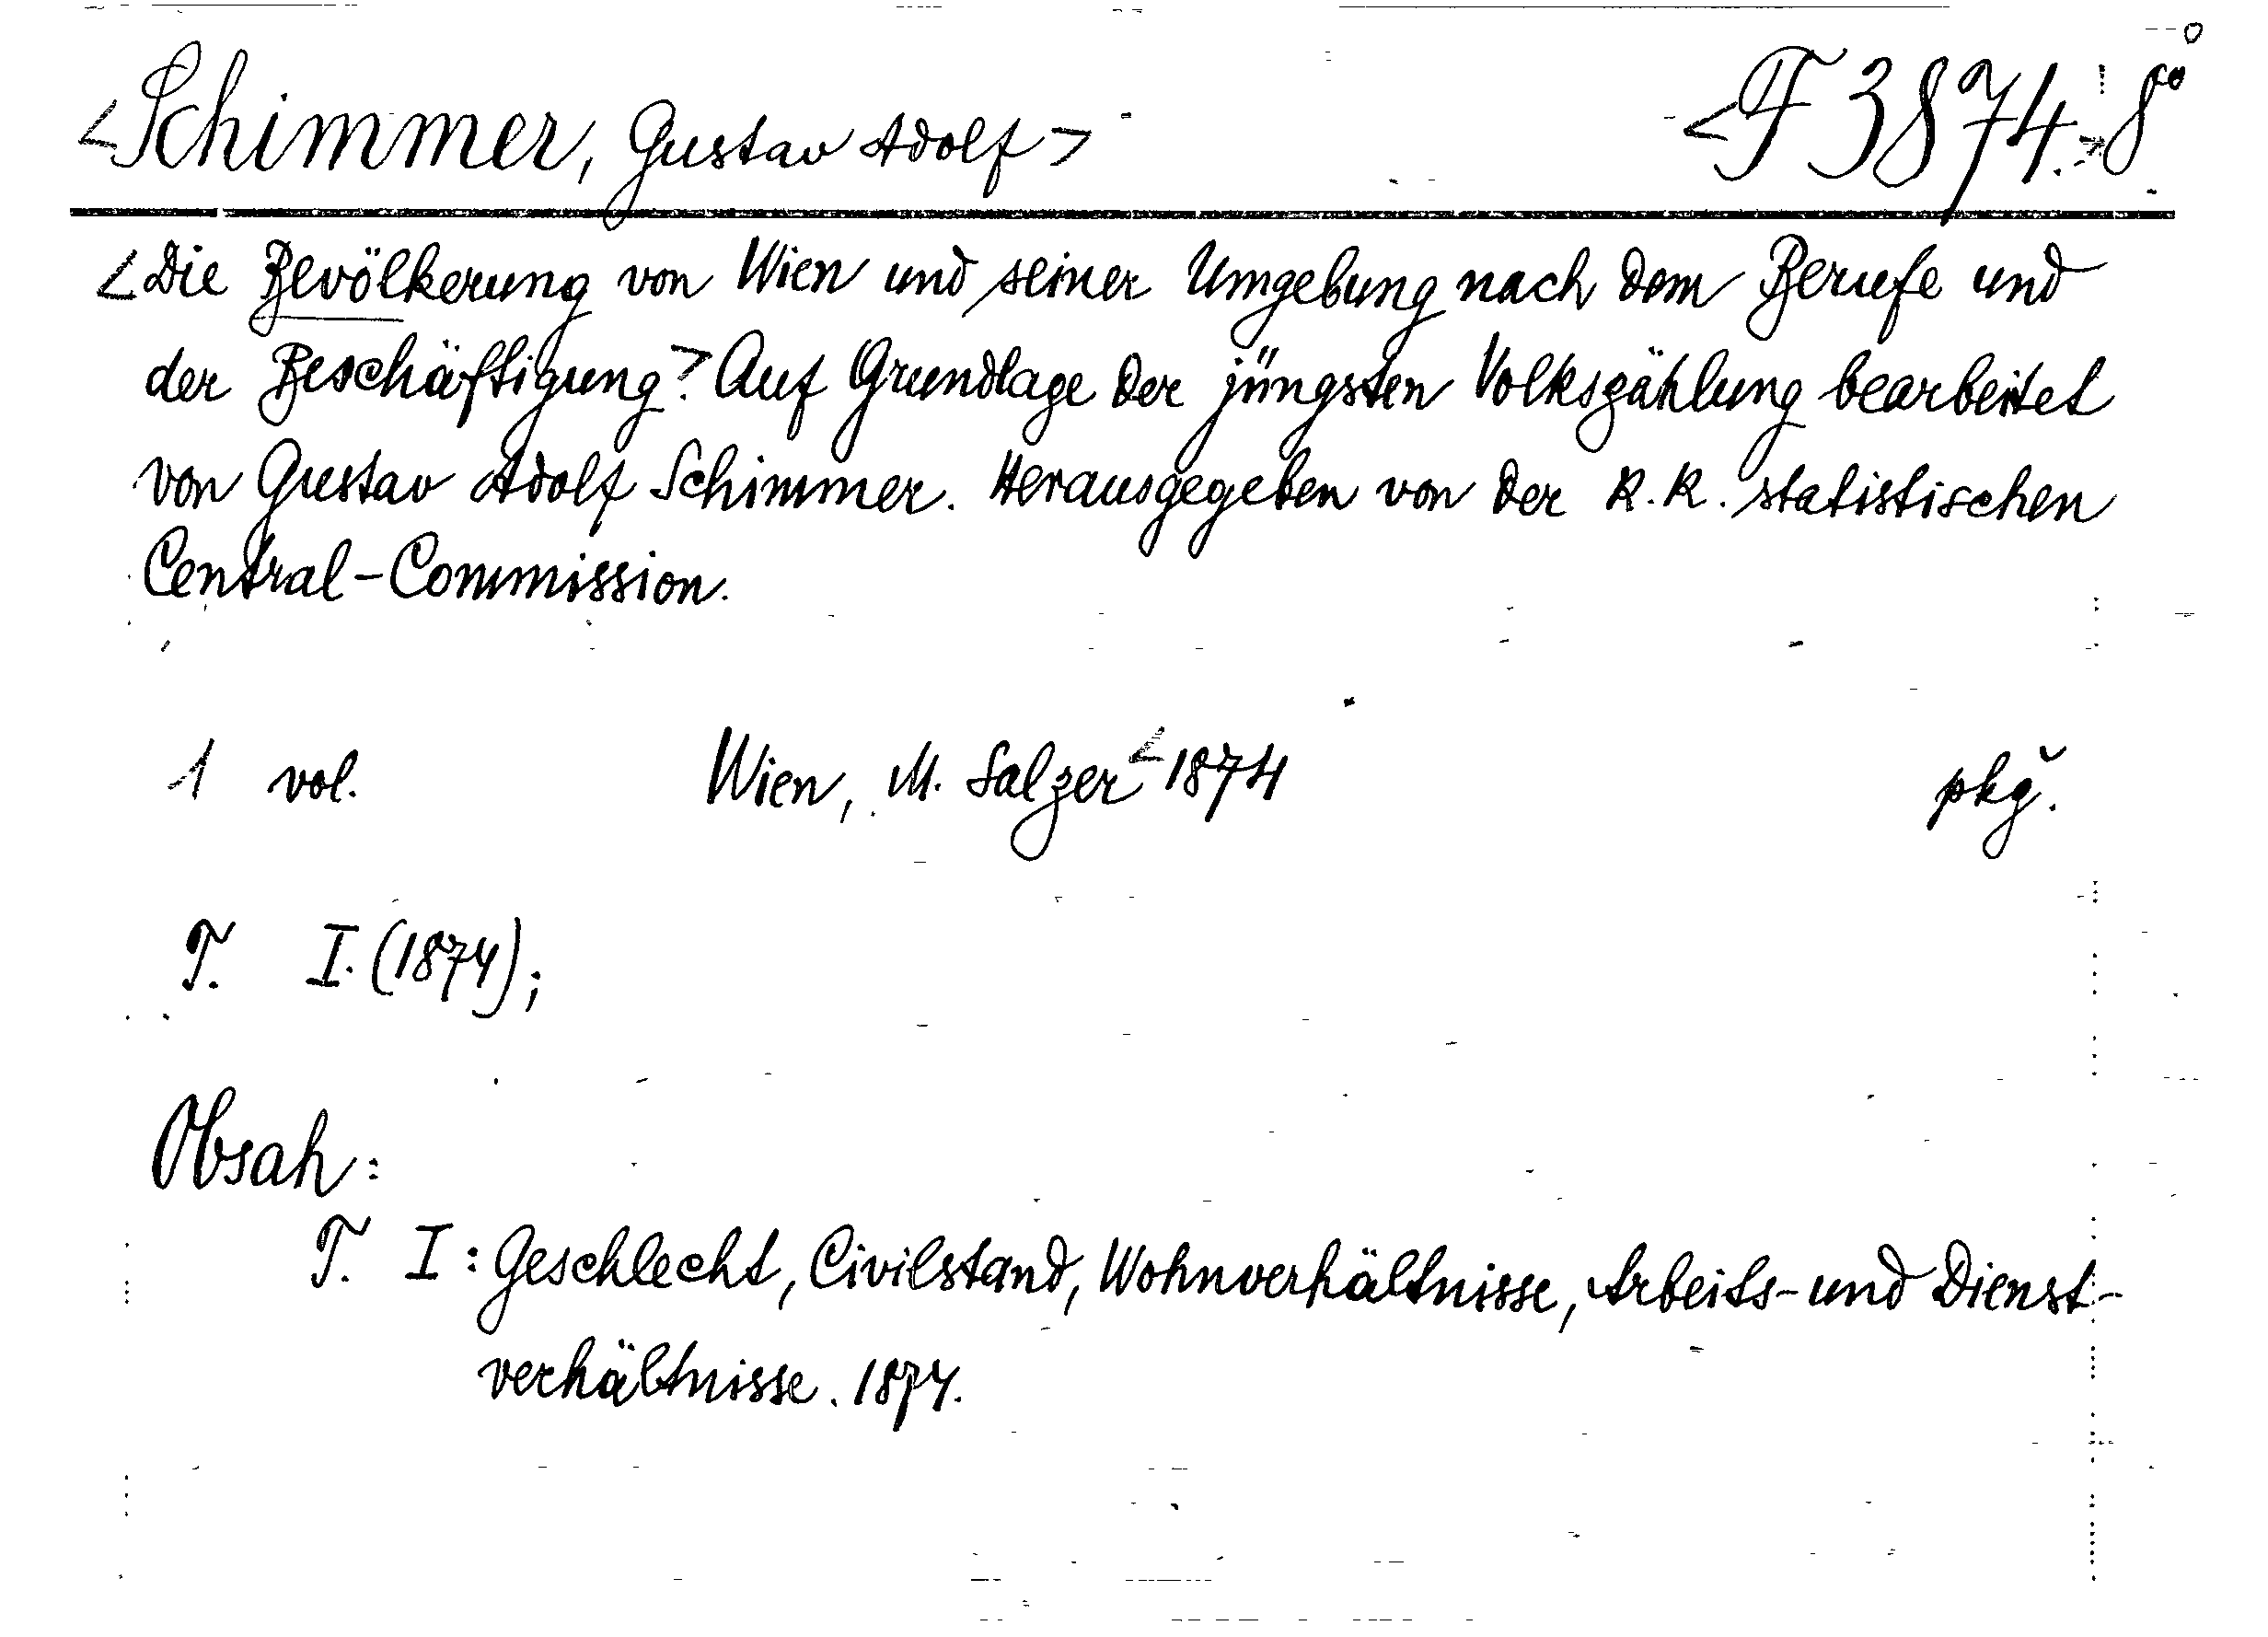 <Schimmer, Gustav Adolf> <F 3874.> 8°
<Die Bevölkerung von Wien und seiner Umgebung nach dem Berufe und
der Beschäftigung.> Auf Grundlage der jüngsten Volkszählung bearbeitet
von Gustav Adolf Schimmer. Herausgegeben von der K. K. statistischen
Central-Commission.
1 vol. Wien, M. Salzer <1874 pkg.
T. I. (1874);
Obsah:
T. I: Geschlecht, Civilstand, Wohnverhältnisse, Arbeits- und Dienst-
verhältnisse. 1874.